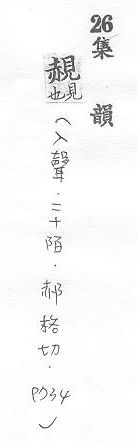 26集韻
見也(入聲.二十陌.郝格切.P734)